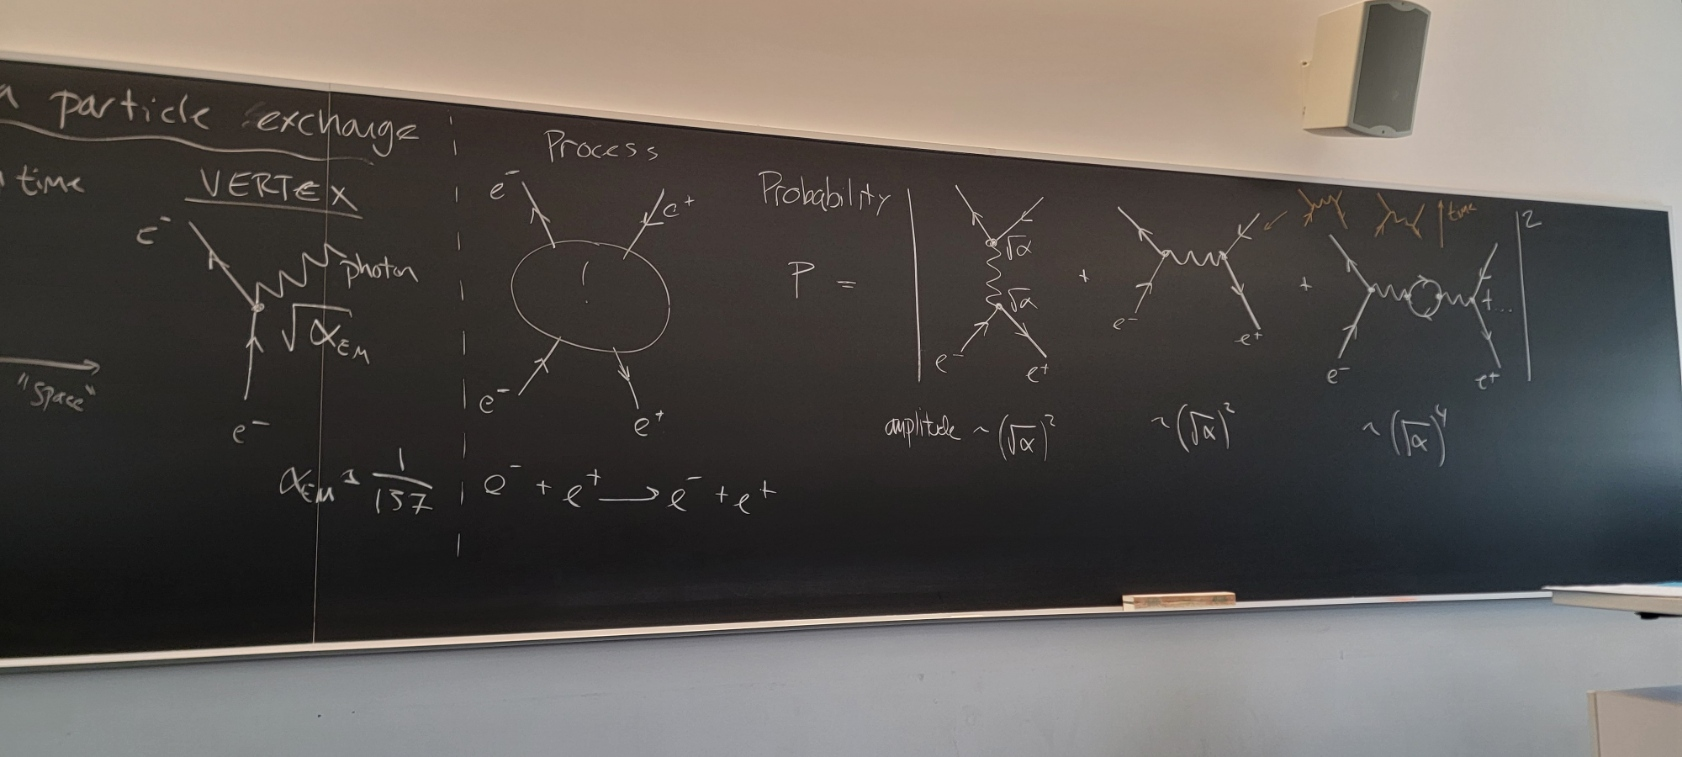 particle exchange
time
VERTEX
e⁻
photon
√α_EM
"Space"
e⁻
α_EM = 1/137
Process
e⁻
e⁺
!
e⁻
e⁺
e⁻ + e⁺ → e⁻ + e⁺
Probability
P = | √α √α e⁻ e⁺ + e⁻ e⁺ + e⁻ e⁺ + ... |²
time
amplitude ~ (√α)² ~ (√α)² ~ (√α)⁴